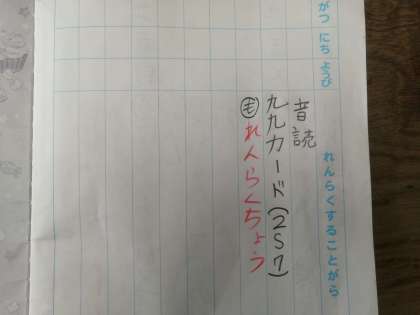 がつ にち ようび
れんらくすることがら
音読
九九カード(2S7)
㋲れんらくちょう